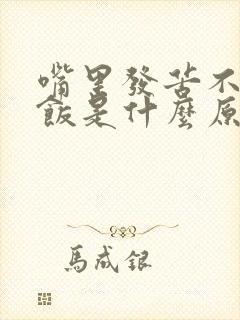 嘴里發苦不
飯是什麼原
馬成銀